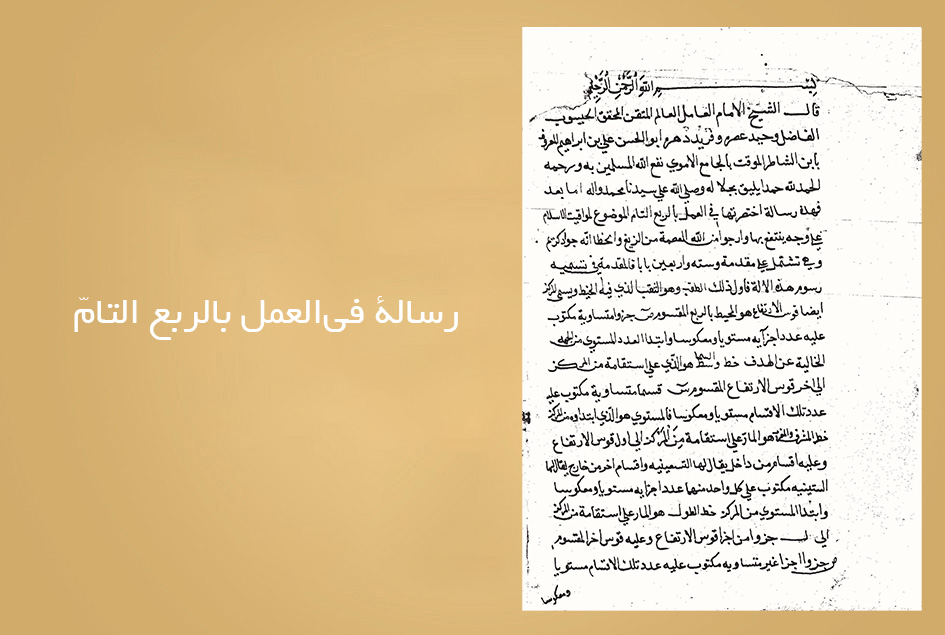 رسالۀ فی‌العمل بالربع التامّ
بســم الله الرحمن الرحيم
قال الشيخ الامام العامل العالم المتقن المحقق الحيسوب
الفاضل وحيد عصره وفريد دهره ابو الحسن علي بن ابراهيم المعروف
بابن الشاطر الموقت بالجامع الاموي نفع الله المسلمين به ورحمه
الحمد لله حمدا يليق بجلاله وصلى الله علي سيدنا محمد واله اما بعد
فهذه رسالة اختصرتها في العمل بالربع التام الموضوع لمواقيت الاسلام
علي وجه ينتفع بها وارجوا من الله العصمة من الزيغ والخطا انه جواد كريم
وهي تشتمل علي مقدمة وسته واربعين بابا فالمقدمة في تسميه
رسوم هذه الالة فاول ذلك القطب وهو الثقب الذي فيه الخيط ويسمي المركز
ايضا قوس الارتفاع هو المحيط بالربع المقسوم ص جزوا متساوية مكتوب
عليه عدد اجزايه مستويا ومعكوسا وابتدا العدد المستوي من الجهه
الخالية عن الهدف خط وسط السما هو الذي علي استقامة من المركز
الي اخر قوس الارتفاع المقسوم س قسما متساوية مكتوب عليه
عدد تلك الاقسام مستويا ومعكوسا فالمستوي هو الذي ابتداوه من المركز
خط المشرق والمغرب هو المار علي استقامة من المركز الي اول قوس الارتفاع
وعليه اقسام من داخل يقال لها التسعينيه واقسام اخر من خارج يقال لها
الستينيه مكتوب علي كل واحد منهما عدد اجزايه مستويا ومعكوسا
وابتدا المستوي من المركز خط الطول هو المار علي استقامة من المركز
الي جزوا من اجزا قوس الارتفاع وعليه قوس اخر المقسوم
ص جزوا اجزا غير متساويه مكتوب عليه عدد تلك الاقسام مستويا
ومعكوسا